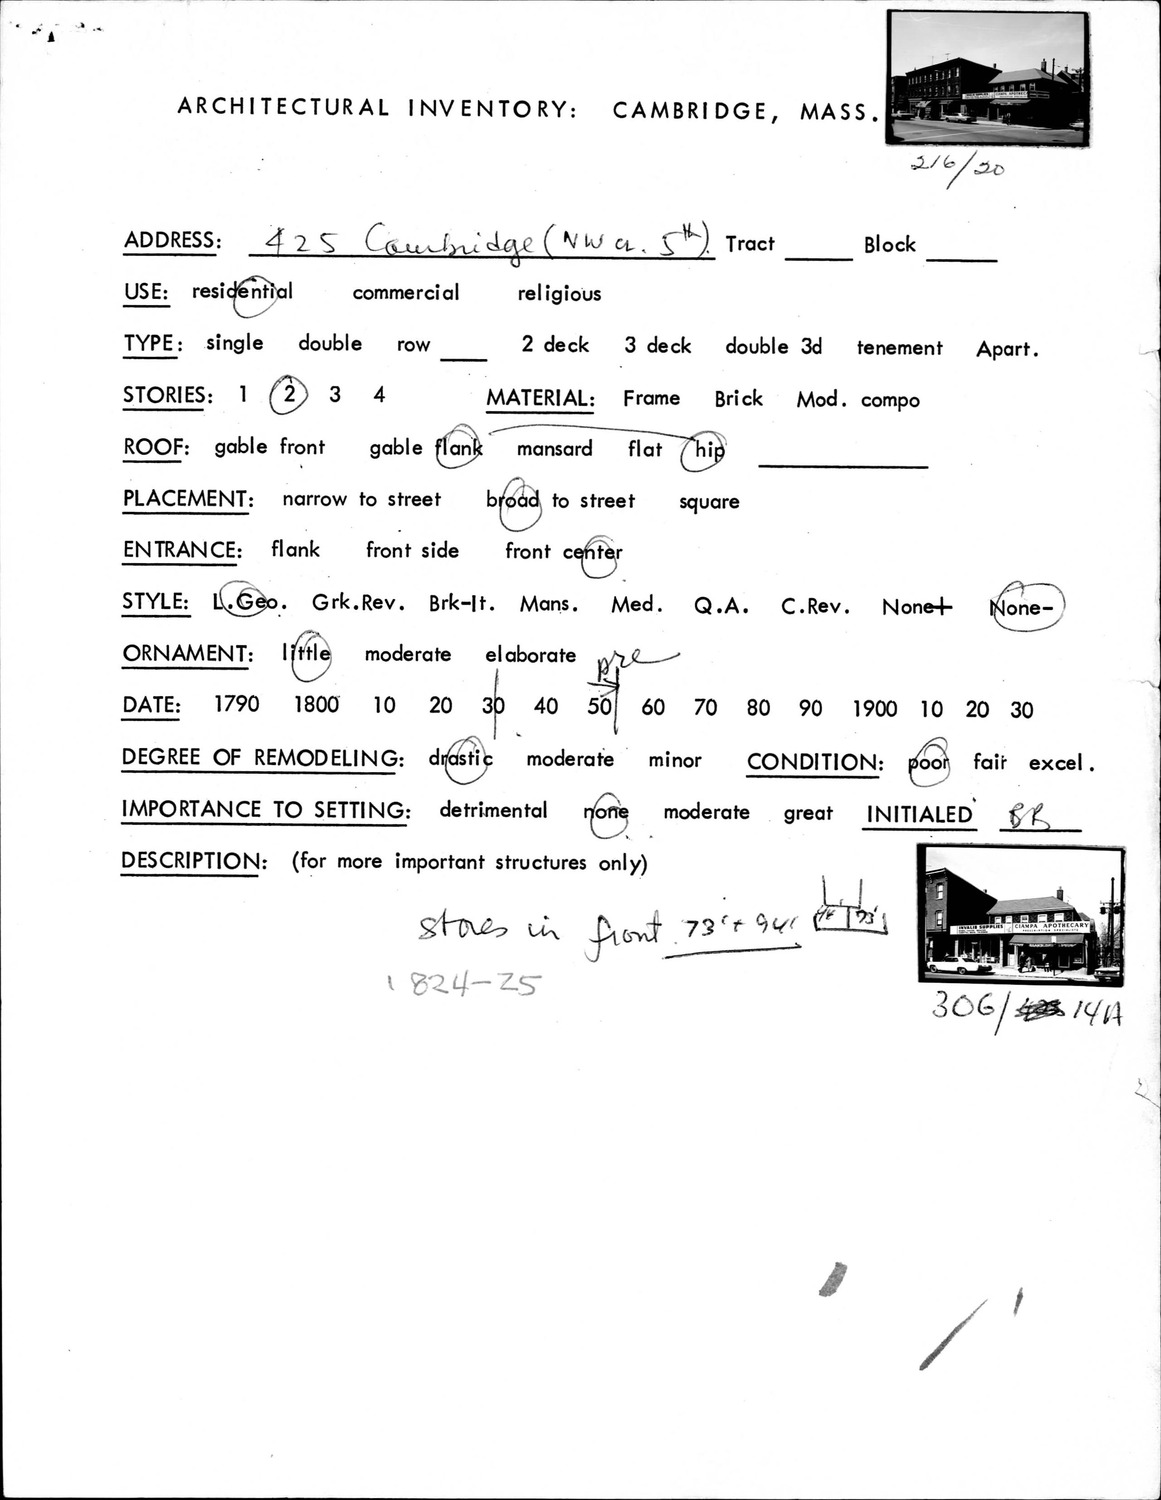 ARCHITECTURAL INVENTORY: CAMBRIDGE, MASS.
216/20
ADDRESS: 425 Cambridge (NW cr. 5th). Tract Block
USE: residential commercial religious
TYPE: single double row 2 deck 3 deck double 3d tenement Apart.
STORIES: 1 2 3 4 MATERIAL: Frame Brick Mod. compo
ROOF: gable front gable flank mansard flat hip
PLACEMENT: narrow to street broad to street square
ENTRANCE: flank front side front center
STYLE: L.Geo. Grk.Rev. Brk-It. Mans. Med. Q.A. C.Rev. None+ None-
ORNAMENT: little moderate elaborate pre
DATE: 1790 1800 10 20 30 40 50 60 70 80 90 1900 10 20 30
DEGREE OF REMODELING: drastic moderate minor CONDITION: poor fair excel.
IMPORTANCE TO SETTING: detrimental none moderate great INITIALED BR
DESCRIPTION: (for more important structures only)
stores in front 73'+ 94' 94 73'
INVALID SUPPLIES CIAMPA APOTHECARY
1824-25
306/ 14A